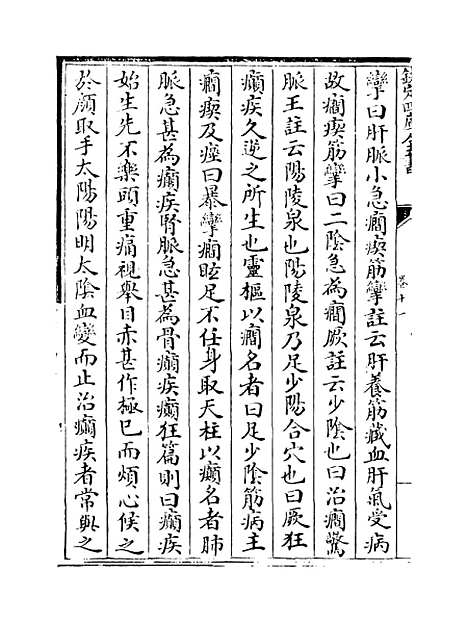 欽定四庫全書
卷十一
攣曰肝脈小急癎瘈筋攣註云肝養筋藏血肝氣受病
故癎瘈筋攣曰二陰急為癎厥註云少陰也曰治癎驚
脈王註云陽陵泉也陽陵泉乃足少陽合穴也曰厥狂
癲疾久逆之所生也靈樞以癎名者曰足少陰筋病主
癎瘈及痙曰暴攣癎眩足不任身取天柱以癲名者肺
脈急甚為癲疾腎脈急甚為骨癲疾癲狂篇則曰癲疾
始生先不樂頭重痛視舉目赤甚作極巳而煩心候之
於顔取手太陽陽明太陰血變而止治癲疾者常與之